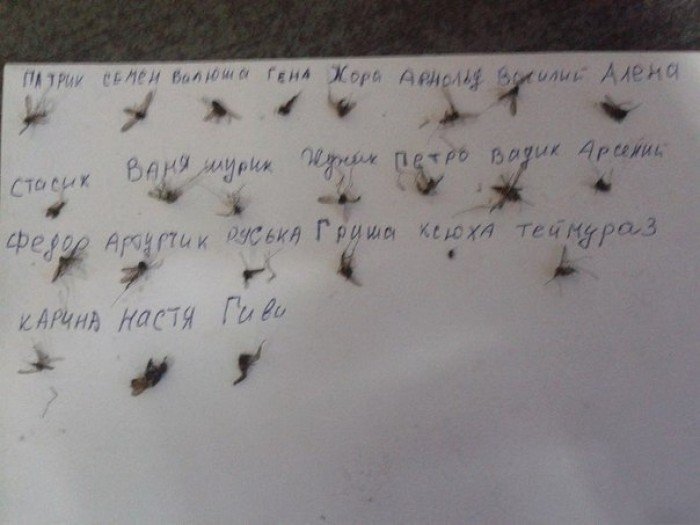 Патрик Семен Валюша Гена Жора Арнольд Василий Алена
Стасик Ваня Шурик Жужик Петро Вадик Арсений
Федор Артурчик Руська Гриша Ксюха Теймураз
Карина Настя Гиви